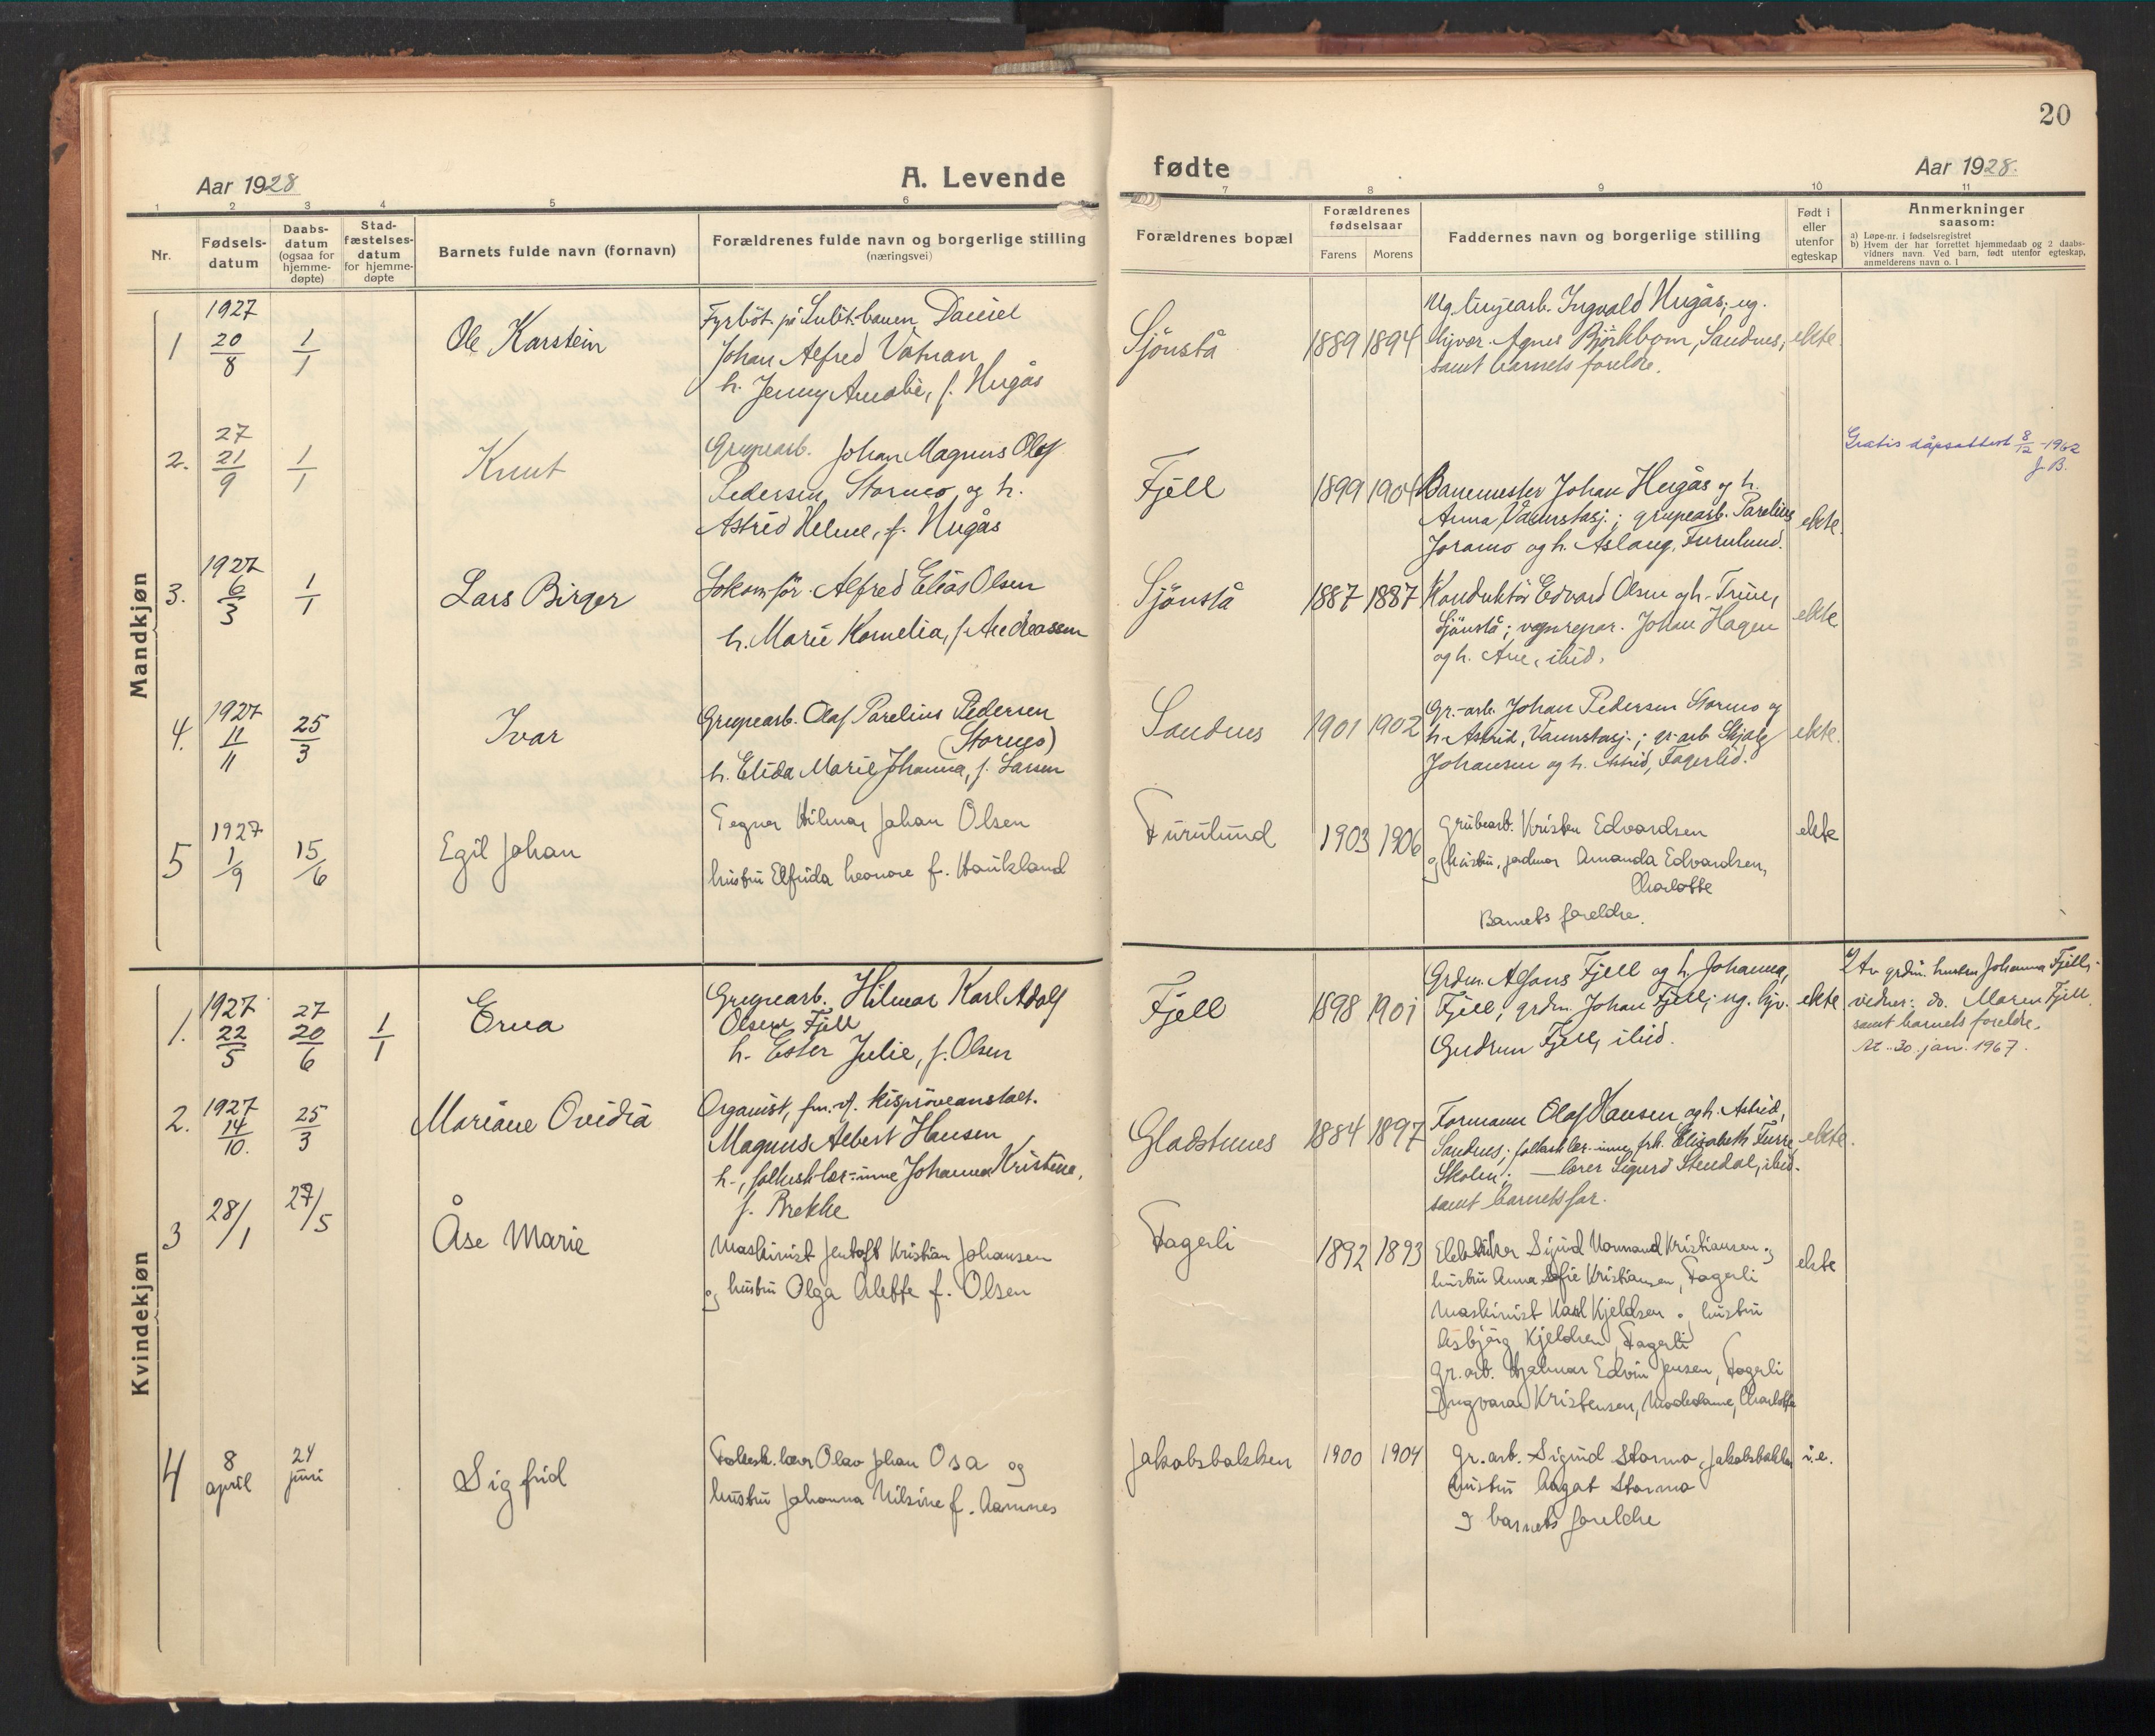 20
Aar 1928
A. Levende
fødte
Aar 1928.
1 2 3 4 5 6 7 8 9 10 11
Nr.
Fødsels-
datum
Daabs-
datum
(ogsaa for
hjemme-
døpte)
Stad-
fæstelses-
datum
for hjemme-
døpte
Barnets fulde navn (fornavn)
Forældrenes fulde navn og borgerlige stilling
(næringsvei)
Forældrenes bopæl
Forældrenes
fødselsaar
Farens Morens
Faddernes navn og borgerlige stilling
Født i
eller
utenfor
egteskap
Anmerkninger
saasom:
a) Løpe-nr. i fødselsregistret
b) Hvem der har forrettet hjemmedaab og 2 daabs-
vidners navn. Ved barn, født utenfor egteskap,
anmelderens navn o. l
Mandkjøn
1
1927
20/8
1/1
Ole Karstein
Fyrböt. på Sulit.banen Daniel
Johan Alfred Vatnan
h. Jenny Amalie, f. Hugås
Sjönstå
1889 1894
Ug. linjearb. Ingvald Hugås; ug.
hjvær. Agnes Björkbom, Sandnes;
samt barnets foreldre.
ekte.
2.
27
21/9
1/1
Knut
Grupearb. Johan Magnus Olaf
Pedersen Stormo, og h.
Astrid Helene, f. Hugås
Fjell
1899 1904
Banemester Johan Hugås og h.
Anna, Vannstasj.; grupearb. Parelius
Joramo og h. Aslaug, Furulund.
ekte.
Gratis dåpsattest 8/12-1962
J. B.
3.
1927
6/3
1/1
Lars Birger
Lokom.för. Alfred Elias Olsen
h. Marie Kornelia, f. Andreassen
Sjönstå
1887 1887
Konduktör Edvard Olsen og h. Trine,
Sjönstå; vognrepar. Johan Hagen
og h. Ane, ibid.
ekte.
4.
1927
11/11
25/3
Ivar
Grupearb. Olaf Parelius Pedersen
(Stormo)
h. Elida Marie Johanna, f. Larsen
Sandnes
1901 1902
Gr.-arb. Johan Pedersen Stormo og
h. Astrid, Vannstasj.; gr-arb. Skjalg
Johansen og h. Astrid, Fagerlid.
ekte.
5
1927
1/9
15/6
Egil Johan
Tegner Hilmar Johan Olsen
hustru Elfrida Leonore f. Haukland
Furulund
1903 1906
Grubearb. Kristen Edvardsen
og hustru, jordmor Amanda Edvardsen,
Charlotte
Barnets foreldre.
ekte
Kvindekjøn
1.
1927
22/5
27
20/6
1/1
Erna
Grupearb. Hilmar Karl Adolf
Olsen Fjell
h. Ester Julie, f. Olsen
Fjell
1898 1901
Grdm. Alfons Fjell og h. Johanna,
Fjell; grdm. Johan Fjell; ug. hjv.
Gudrun Fjell, ibid.
ekte
Av grdm. hustru Johanna Fjell,
vidner: do. Maren Fjell.
samt barnets foreldre.
At. 30. jan. 1967.
2.
1927
14/10.
25/3
Mariane Ovidia
Organist, fm. v. kisprøveanstalt.
Magnus Albert Hansen
h., folkesk.lær-inne Johanna Kristine,
f. Brekke
Gladstunes
1884 1897
Formann Olaf Hansen og h. Astrid,
Sandnes; folkesk.lær-inne, frk. Elisabeth Furre,
Skolen; — lærer Sigurd Stendal, ibid.
samt barnets far.
ekte.
3
28/1
27/5
Åse Marie
Maskinist Jentoft Kristian Johansen
og hustru Olga Alette f. Olsen
Fagerli
1892 1893
Elektriker Sigurd Normand Kristiansen og
hustru Anna Sofie Kristiansen, Fagerli
Maskinist Karl Kjeldsen og hustru
Asbjørg Kjeldsen, Fagerli
Gr.arb. Hjalmar Edvin Jensen, Fagerli
Ingvara Kristensen, Modedame, Charlotte
ekte
4
8
april
24
juni
Sigfrid
Folkesk. lærer Olav Johan Osa og
hustru Johanna Nilsine f. Aamnes
Jakobsbakken
1900 1904
Gr.arb. Sigurd Stormo, Jakobsbakken
hustru Aagot Stormo
og barnets foreldre
i.e.